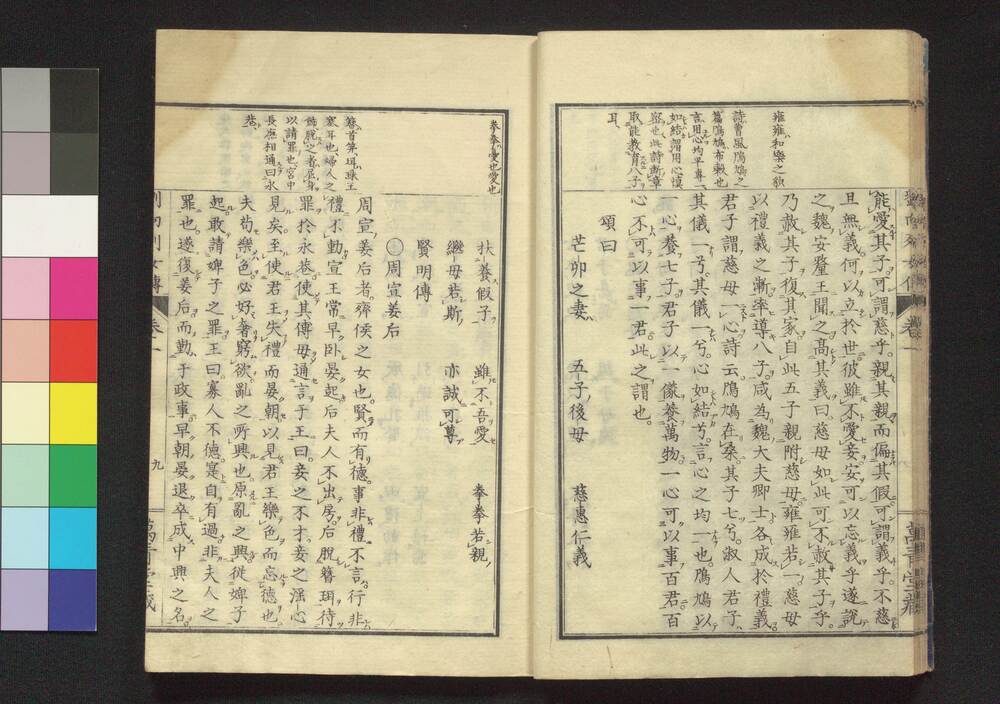 雍雍和樂之貌
詩曹風鳲鳩之
篇鳲鳩布穀也
言用心均平專一
如結謂用心慎
密也此詩斷章
取能教育八子
耳
能愛其子可謂慈乎親其親而偏其假可謂義乎不慈
且無義何以立於世彼雖不愛妾安可以忘義乎遂訟
之魏安釐王聞之高其義曰慈母如此可不赦其子乎
乃赦其子復其家自此五子親附慈母雍雍若一慈母
以禮義之漸率導八子咸為魏大夫卿士各成於禮義
君子謂慈母一心詩云鳲鳩在桑其子七兮淑人君子
其儀一兮其儀一兮心如結兮言心之均一也鳲鳩以
一心養七子君子以一儀養萬物一心可以事百君百
心不可以事一君此之謂也
頌曰
芒卯之妻 五子後母 慈惠仁義
扶養假子 雖不吾愛 拳拳若親
繼母若斯 亦誠可尊
賢明傳
周宣姜后
周宣姜后者齊侯之女也賢而有德事非禮不言行非
禮不動宣王常早卧晏起后夫人不出房后脫簪珥待
罪於永巷使其傅母通言于王曰妾之不才妾之淫心
見矣至使君王失禮而晏朝以見君王樂色而忘德也
夫苟樂色必好奢窮欲亂之所興也原亂之興從婢子
起敢請婢子之罪王曰寡人不德寔自有過非夫人之
罪也遂復姜后而勤于政事早朝晏退卒成中興之名
拳拳愛也
簪首笄珥瑱王
塞耳也婦人之
以請罪也宮中
長廡相通曰永
巷
列女傳 卷一 九